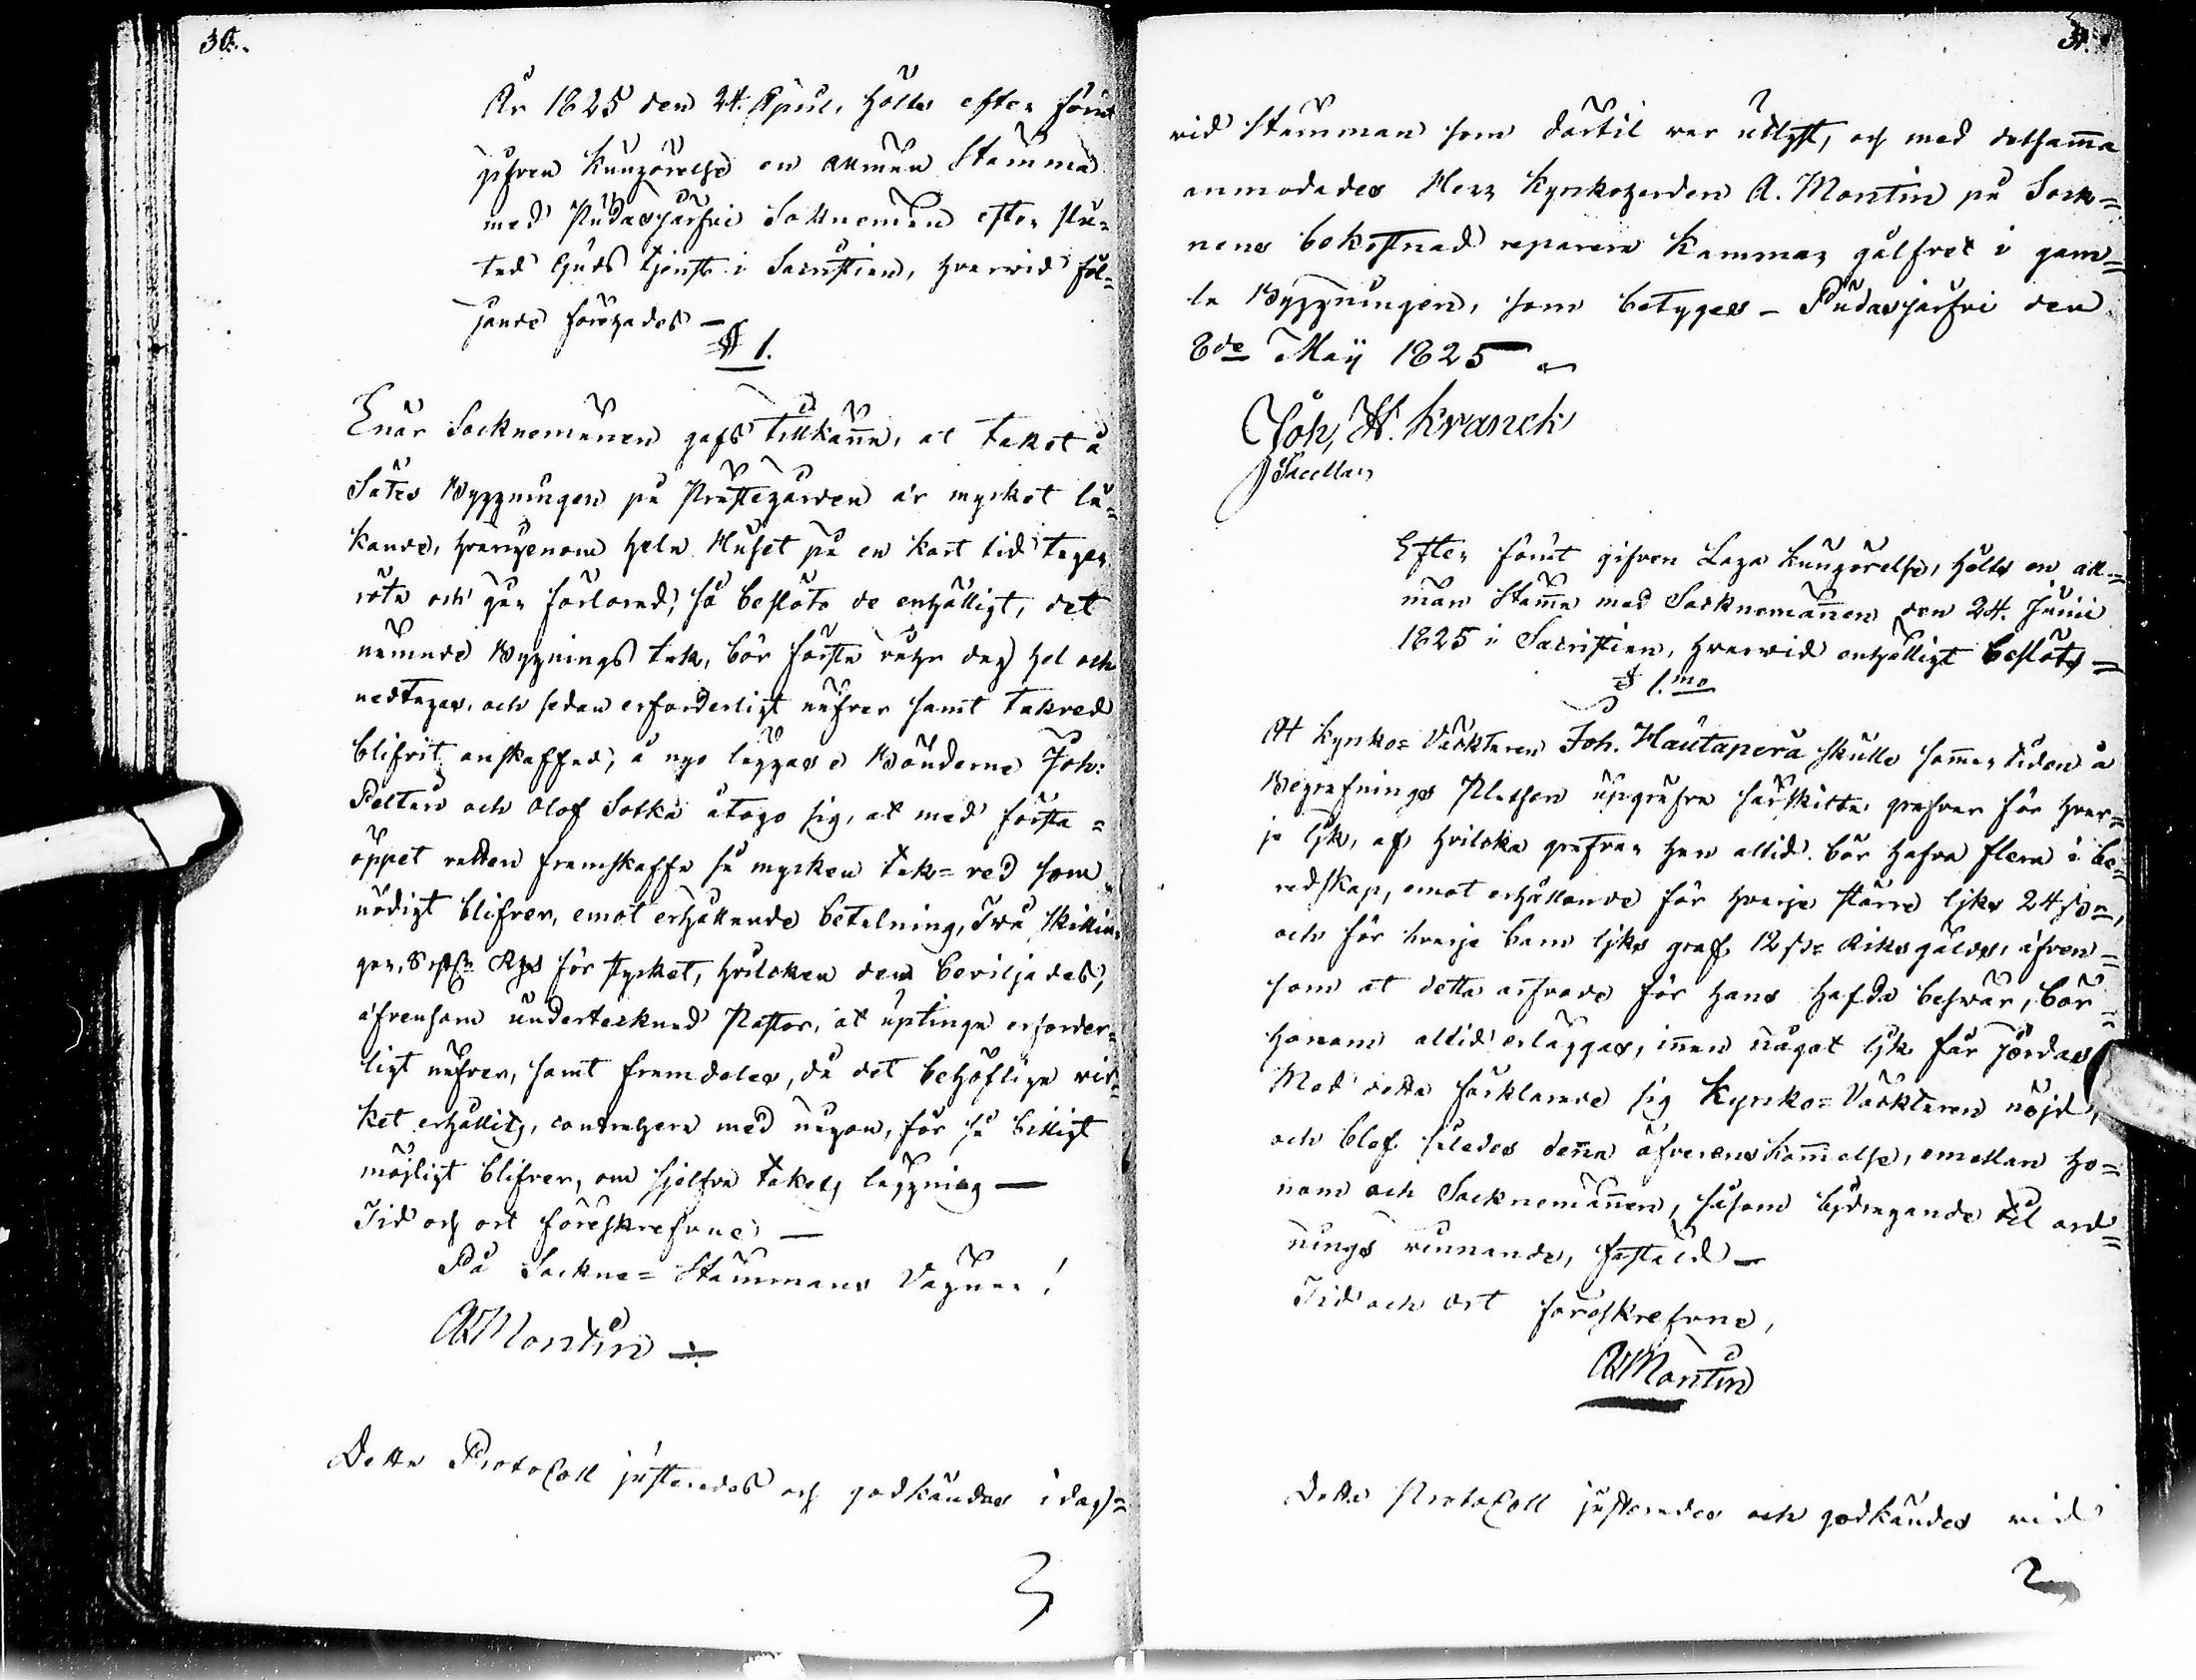 30.
År 1825 den 24. April, hölts efter förut
gifven kungörelse en allmän Stämma
med Pudasjärfvi Soknemän efter slu-
tad Guds tjenst i Sacristien, hvarvid föl-
jande föredrogs —
§ 1.
Enär Socknemännen gafs tillkänna, at taket å
Sätes Byggningen på Prästegården är mycket lä-
kande, hvarigenom hela Huset på en kort tid tager
röta och går förlorad; så beslöto de enhälligt, det
nämnde Byggnings tak, bör första vackra dag hel och
nedtagas, och sedan erforderligt näfver samt takved
blifvit anskaffad, å nyo läggas. Bönderne Joh:
Peltari och Olof Sotka åtogo sig, at med första
öppet vatten framskaffa så mycken tak=ved som
nödigt blifver, emot erhållande betalning, Två skillin-
gar, Rgs för stycket, hvilcken dem beviljades;
äfvensom undertecknad Pastor, at uptinga erforder-
ligt näfver, samt framdeles, då det behöflige vir-
ket erhållits, contrahera med någon, för så billigt
möjligt blifver, om sjelfva takets läggning —
Tid och ort föreskrefvne —
På Sockne=Stämmans Vägnar!
A Montin
Detta Protocoll justerades och godkändes i dag
31.
vid Stämman som därtil var utlyst, och med detsamma
anmodades Herr Kyrkoherden A. Montin på Sock=
nens bekostnad reparera Kammar gålfvet i gam=
la Byggningen, som betygas — Pudasjärfvi den
8de Maij 1825
Joh. H. Kranck
Sacellan
Efter förut gifven Laga Kungörelse, hölts en all=
män Stämma med Socknemännen den 24. Junii
1825 i Sacristien, hvarvid enhälligt beslöts =
§ 1.mo
At Kyrko=Väcktaren Joh. Hautaperä skulle sommartiden å
Begrafnings Platsen upgräfva särskilta grafvar för hvar=
je lik, af hvilcka grafvar han altid bör hafva flera i be=
redskap, emot erhållande för hvarje större liks 24 s
och för hvarje barn liks graf 12 s Riksgälds, äfven=
som at detta arfvode för hans hafda besvär, bör
honom altid erläggas, innan något lik får jordas
Med detta förklarade sig Kyrko=Väcktaren nöjd,
och blef således denna öfverenskommelse, emellan ho=
nom och Socknemännen, såsom bidragande til ord=
nings vinnande, fastald —
Tid och Ort föreskrefvne,
A Montin
Detta Protocoll justerades och godkändes vid